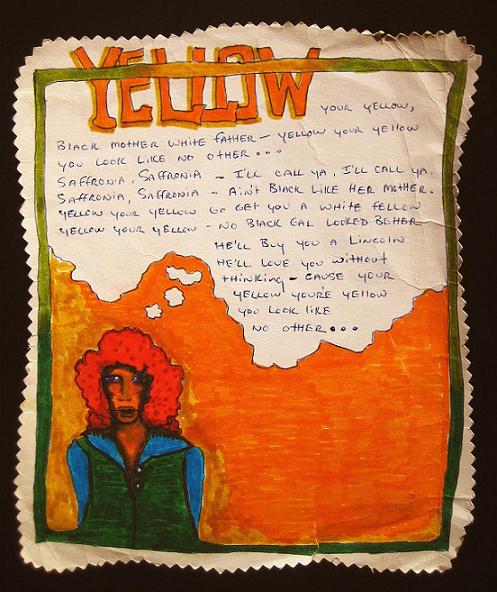 YELLOW
YOUR YELLOW,
BLACK MOTHER WHITE FATHER - YELLOW YOUR YELLOW
YOU LOOK LIKE NO OTHER...
SAFFRONIA, SAFFRONIA - I'LL CALL YA, I'LL CALL YA.
SAFFRONIA, SAFFRONIA - AIN'T BLACK LIKE HER MOTHER.
YELLOW YOUR YELLOW GO GET YOU A WHITE FELLOW
YELLOW YOUR YELLOW - NO BLACK GAL LOOKED BETTER
HE'LL BUY YOU A LINCOLN
HE'LL LOVE YOU WITHOUT
THINKING - CAUSE YOUR
YELLOW YOU'RE YELLOW
YOU LOOK LIKE
NO OTHER...